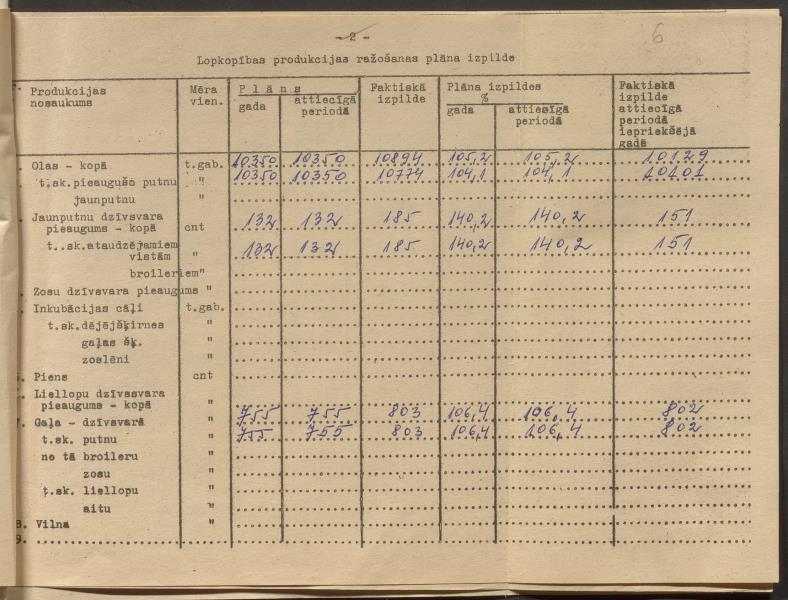 - 2 -
6
Lopkopības produkcijas ražošanas plāna izpilde
Produkcijas nosaukums | Mēra vien. | Plāns gada | Plāns attiecīgā periodā | Faktiskā izpilde | Plāna izpildes % gada | attiesīgā periodā | Faktiskā izpilde attiecīgā periodā iepriekšējā gadā
Olas - kopā t.gab. 10350 10350 10894 105,2 105,2 10129
t.sk.pieaugušo putnu " 10350 10350 10774 104,1 104,1 10101
jaunputnu "
Jaunputnu dzīvsvara
pieaugums - kopā cnt 132 132 185 140,2 140,2 151
t..sk.ataudzējamiem
vistām " 132 132 185 140,2 140,2 151
broileriem "
Zosu dzīvsvara pieaugums "
Inkubācijas cāļi t.gab.
t.sk.dējējšķirnes "
gaļas šķ. "
zoslēni "
Piens cnt
Liellopu dzīvsvara
pieaugums - kopā "
7. Gaļa - dzīvsvarā " 755 755 803 106,4 106,4 802
t.sk. putnu " 755 755 803 106,4 106,4 802
no tā broileru "
zosu "
t.sk. liellopu "
aitu "
8. Vilna "
9.